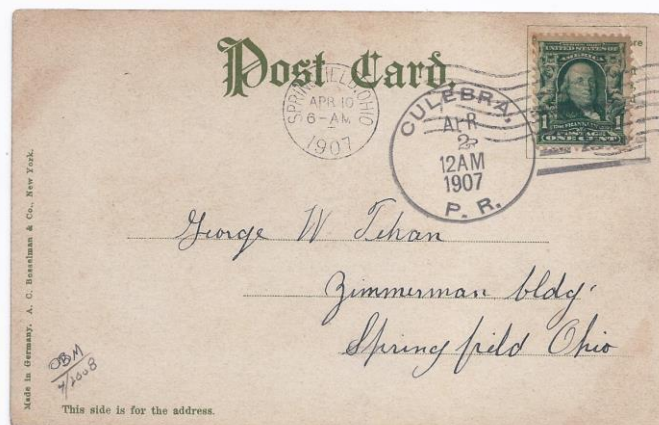 Post Card.
SPRINGFIELD, OHIO
APR 10
6-AM
1907
CULEBRA,
APR
2
12AM
1907
P. R.
UNITED STATES OF
AMERICA
1
1
ONE CENT
George W Tehan
Zimmerman bldg.
Springfield Ohio
Made in Germany, A. C. Bosselman & Co., New York.
OBM
4/2008
This side is for the address.